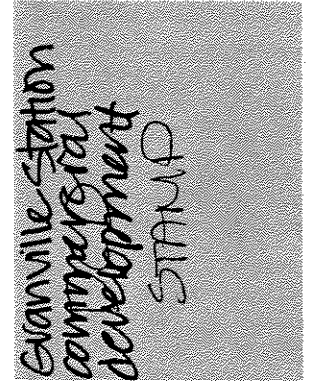 Granville Station
commercial
development
STAMP